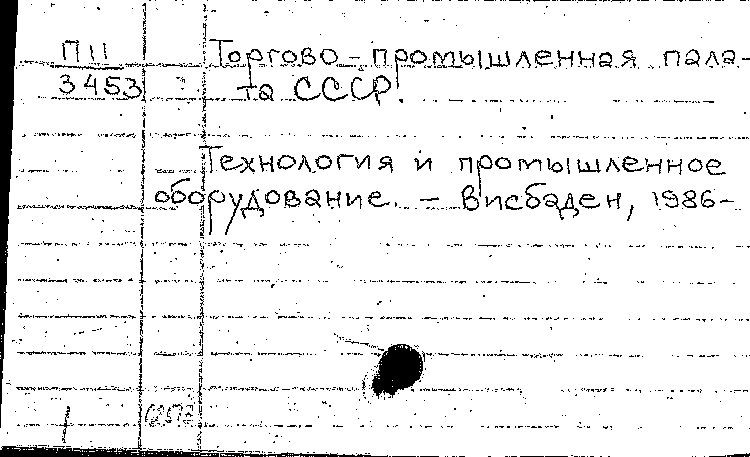 П 11
3453
Торгово-промышленная пала-
та СССР.
Технология и промышленное
оборудование. – Висбаден, 1986-